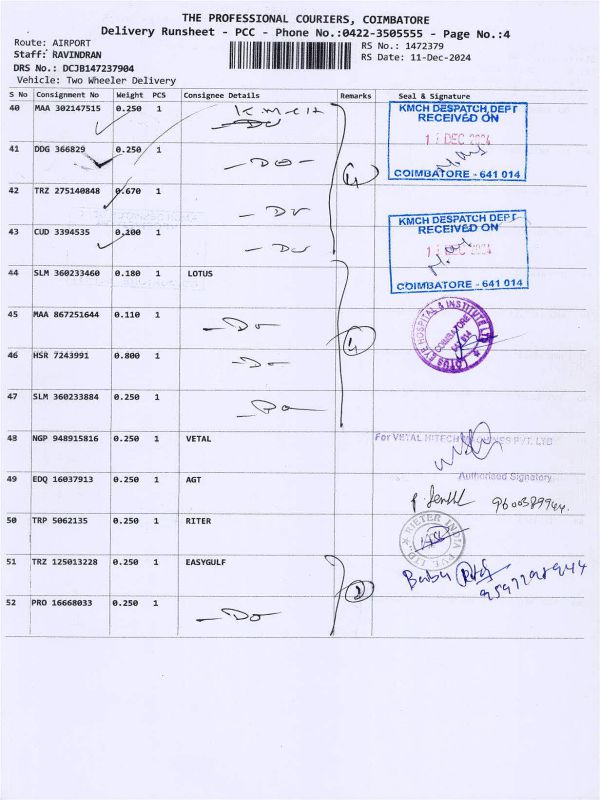 THE PROFESSIONAL COURIERS, COIMBATORE
Delivery Runsheet - PCC - Phone No.:0422-3505555 - Page No.:4
Route: AIRPORT
Staff: RAVINDRAN
RS No.: 1472379
RS Date: 11-Dec-2024
DRS No.: DCJB147237904
Vehicle: Two Wheeler Delivery
S No Consignment No Weight PCS Consignee Details Remarks Seal & Signature
40 MAA 302147515 0.250 1 KMCH
41 DDG 366829 0.250 1 - Do -
42 TRZ 275140848 0.670 1 - Do
43 CUD 3394535 0.100 1 - Do
(4)
KMCH DESPATCH DEPT
RECEIVED ON
DEC 2024
COIMBATORE - 641 014
KMCH DESPATCH DEPT
RECEIVED ON
DEC 2024
COIMBATORE - 641 014
44 SLM 360233460 0.180 1 LOTUS
45 MAA 867251644 0.110 1 - Do -
46 HSR 7243991 0.800 1 - Do -
47 SLM 360233884 0.250 1 - Do -
(4)
LOTUS EYE HOSPITAL & INSTITUTE LTD
COIMBATORE
641 014
48 NGP 948915816 0.250 1 VETAL
For VETAL HITECH MACHINES PVT. LTD
Authorised Signatory
49 EDQ 16037913 0.250 1 AGT
50 TRP 5062135 0.250 1 RITER
RIETER INDIA PVT. LTD
51 TRZ 125013228 0.250 1 EASYGULF
Babu
52 PRO 16668033 0.250 1 - Do -
(2)